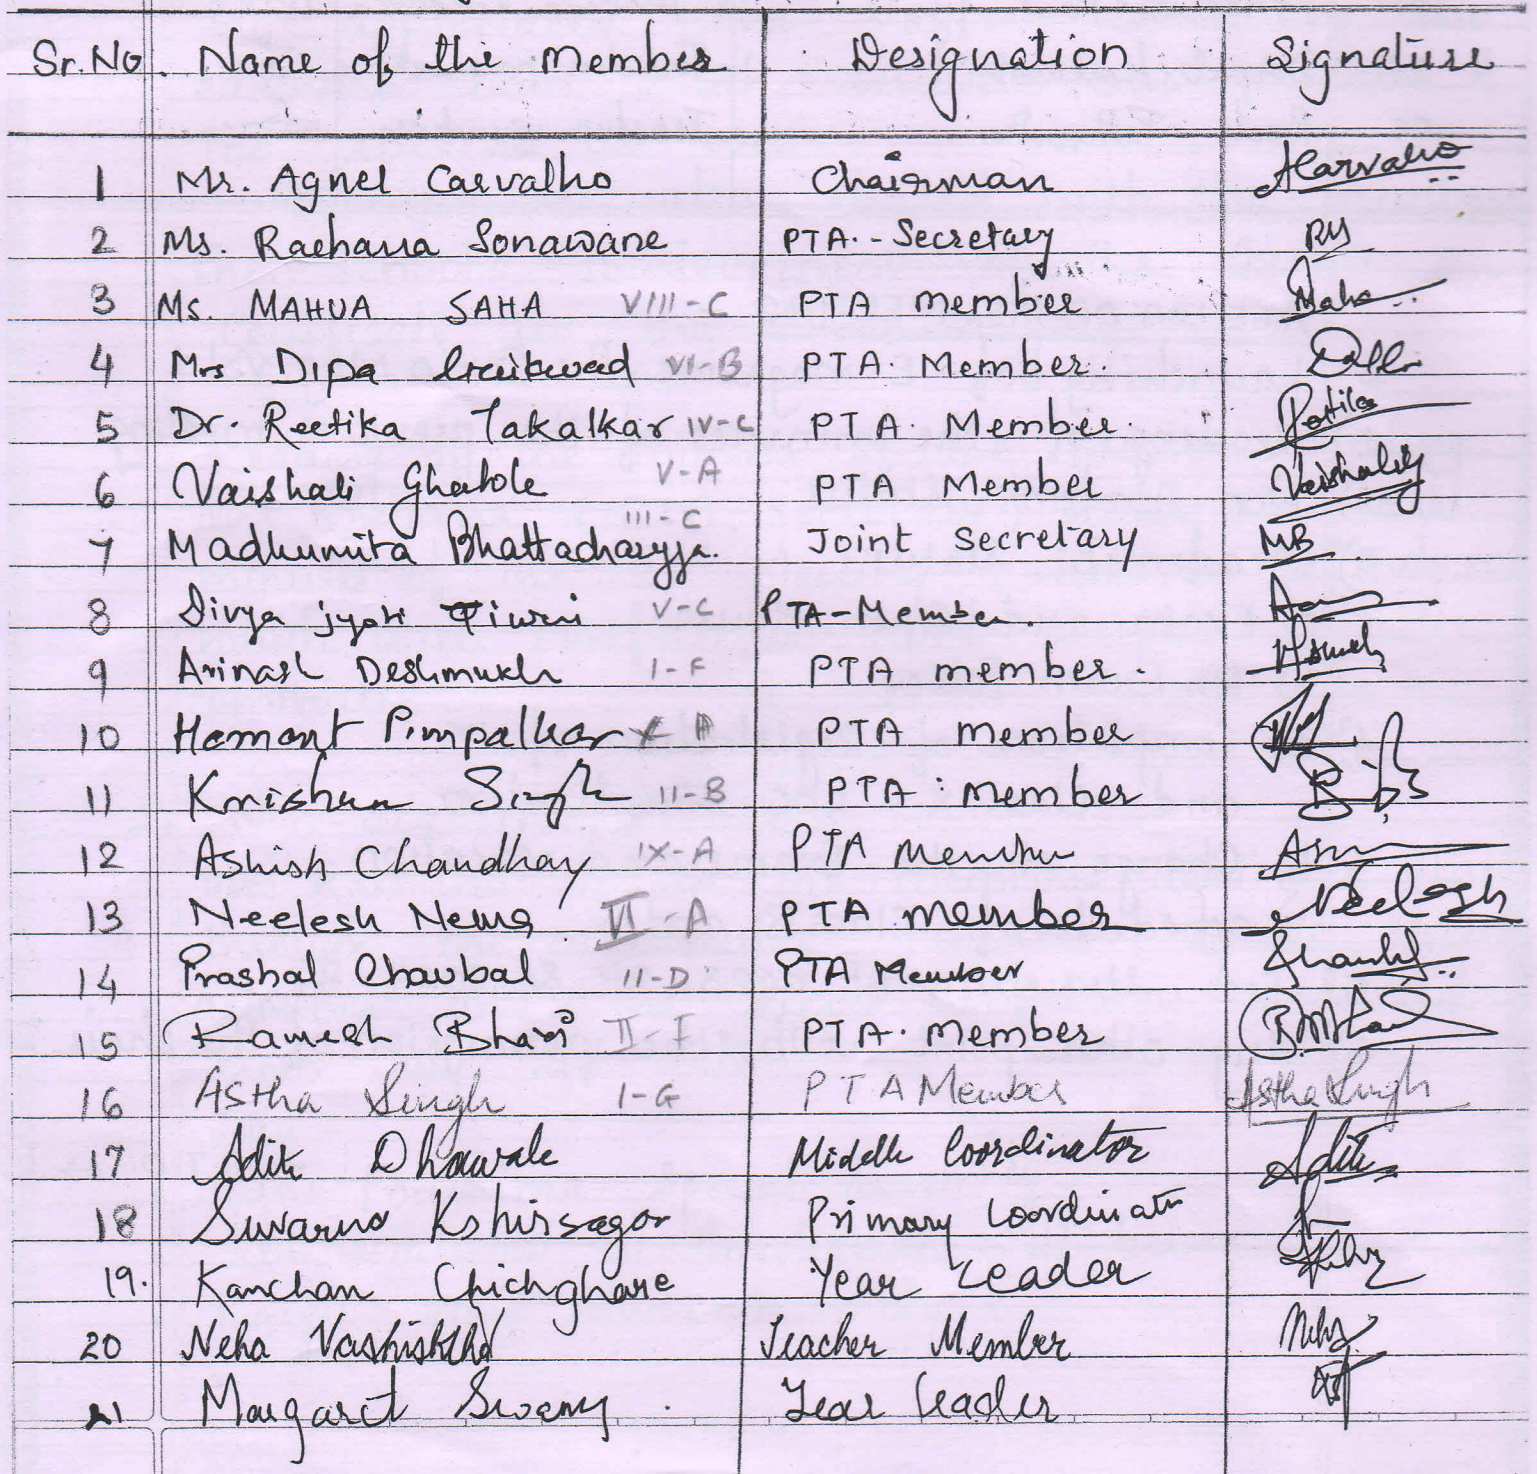 Sr.No. Name of the Member Designation Signature
1 Mr. Agnel Carvalho Chairman ACarvalho
2 Ms. Rachana Sonawane PTA.-Secretary RS
3 Ms. MAHUA SAHA VIII-C PTA member Maha
4 Mrs Dipa Gaikwad VI-B PTA. Member.
5 Dr. Reetika Takalkar IV-C PTA. Member. Reetika
6 Vaishali Ghatole V-A PTA Member Vaishaly
7 Madhumita Bhattacharyya. III-C Joint Secretary MB
8 Divya jyoti Tiwari V-C PTA-Member.
9 Avinash Deshmukh I-F PTA member.
10 Hemant Pimpalkar PTA member
11 Krishna Singh II-B PTA member
12 Ashish Chaudhary IX-A PTA Member
13 Neelesh Nema VI-A PTA member Neelesh
14 Prashal Chaubal II-D PTA Member
15 Ramesh Bhair II-I PTA. member
16 Astha Singh I-G PTA Member Astha Singh
17 Aditi Dhawale Middle Coordinator Aditi
18 Suvarna Kshirsagar Primary Coordinator
19. Kanchan Chichghare Year Leader
20 Neha Vashishtha Teacher Member Neha
21 Margaret Swamy Year Leader